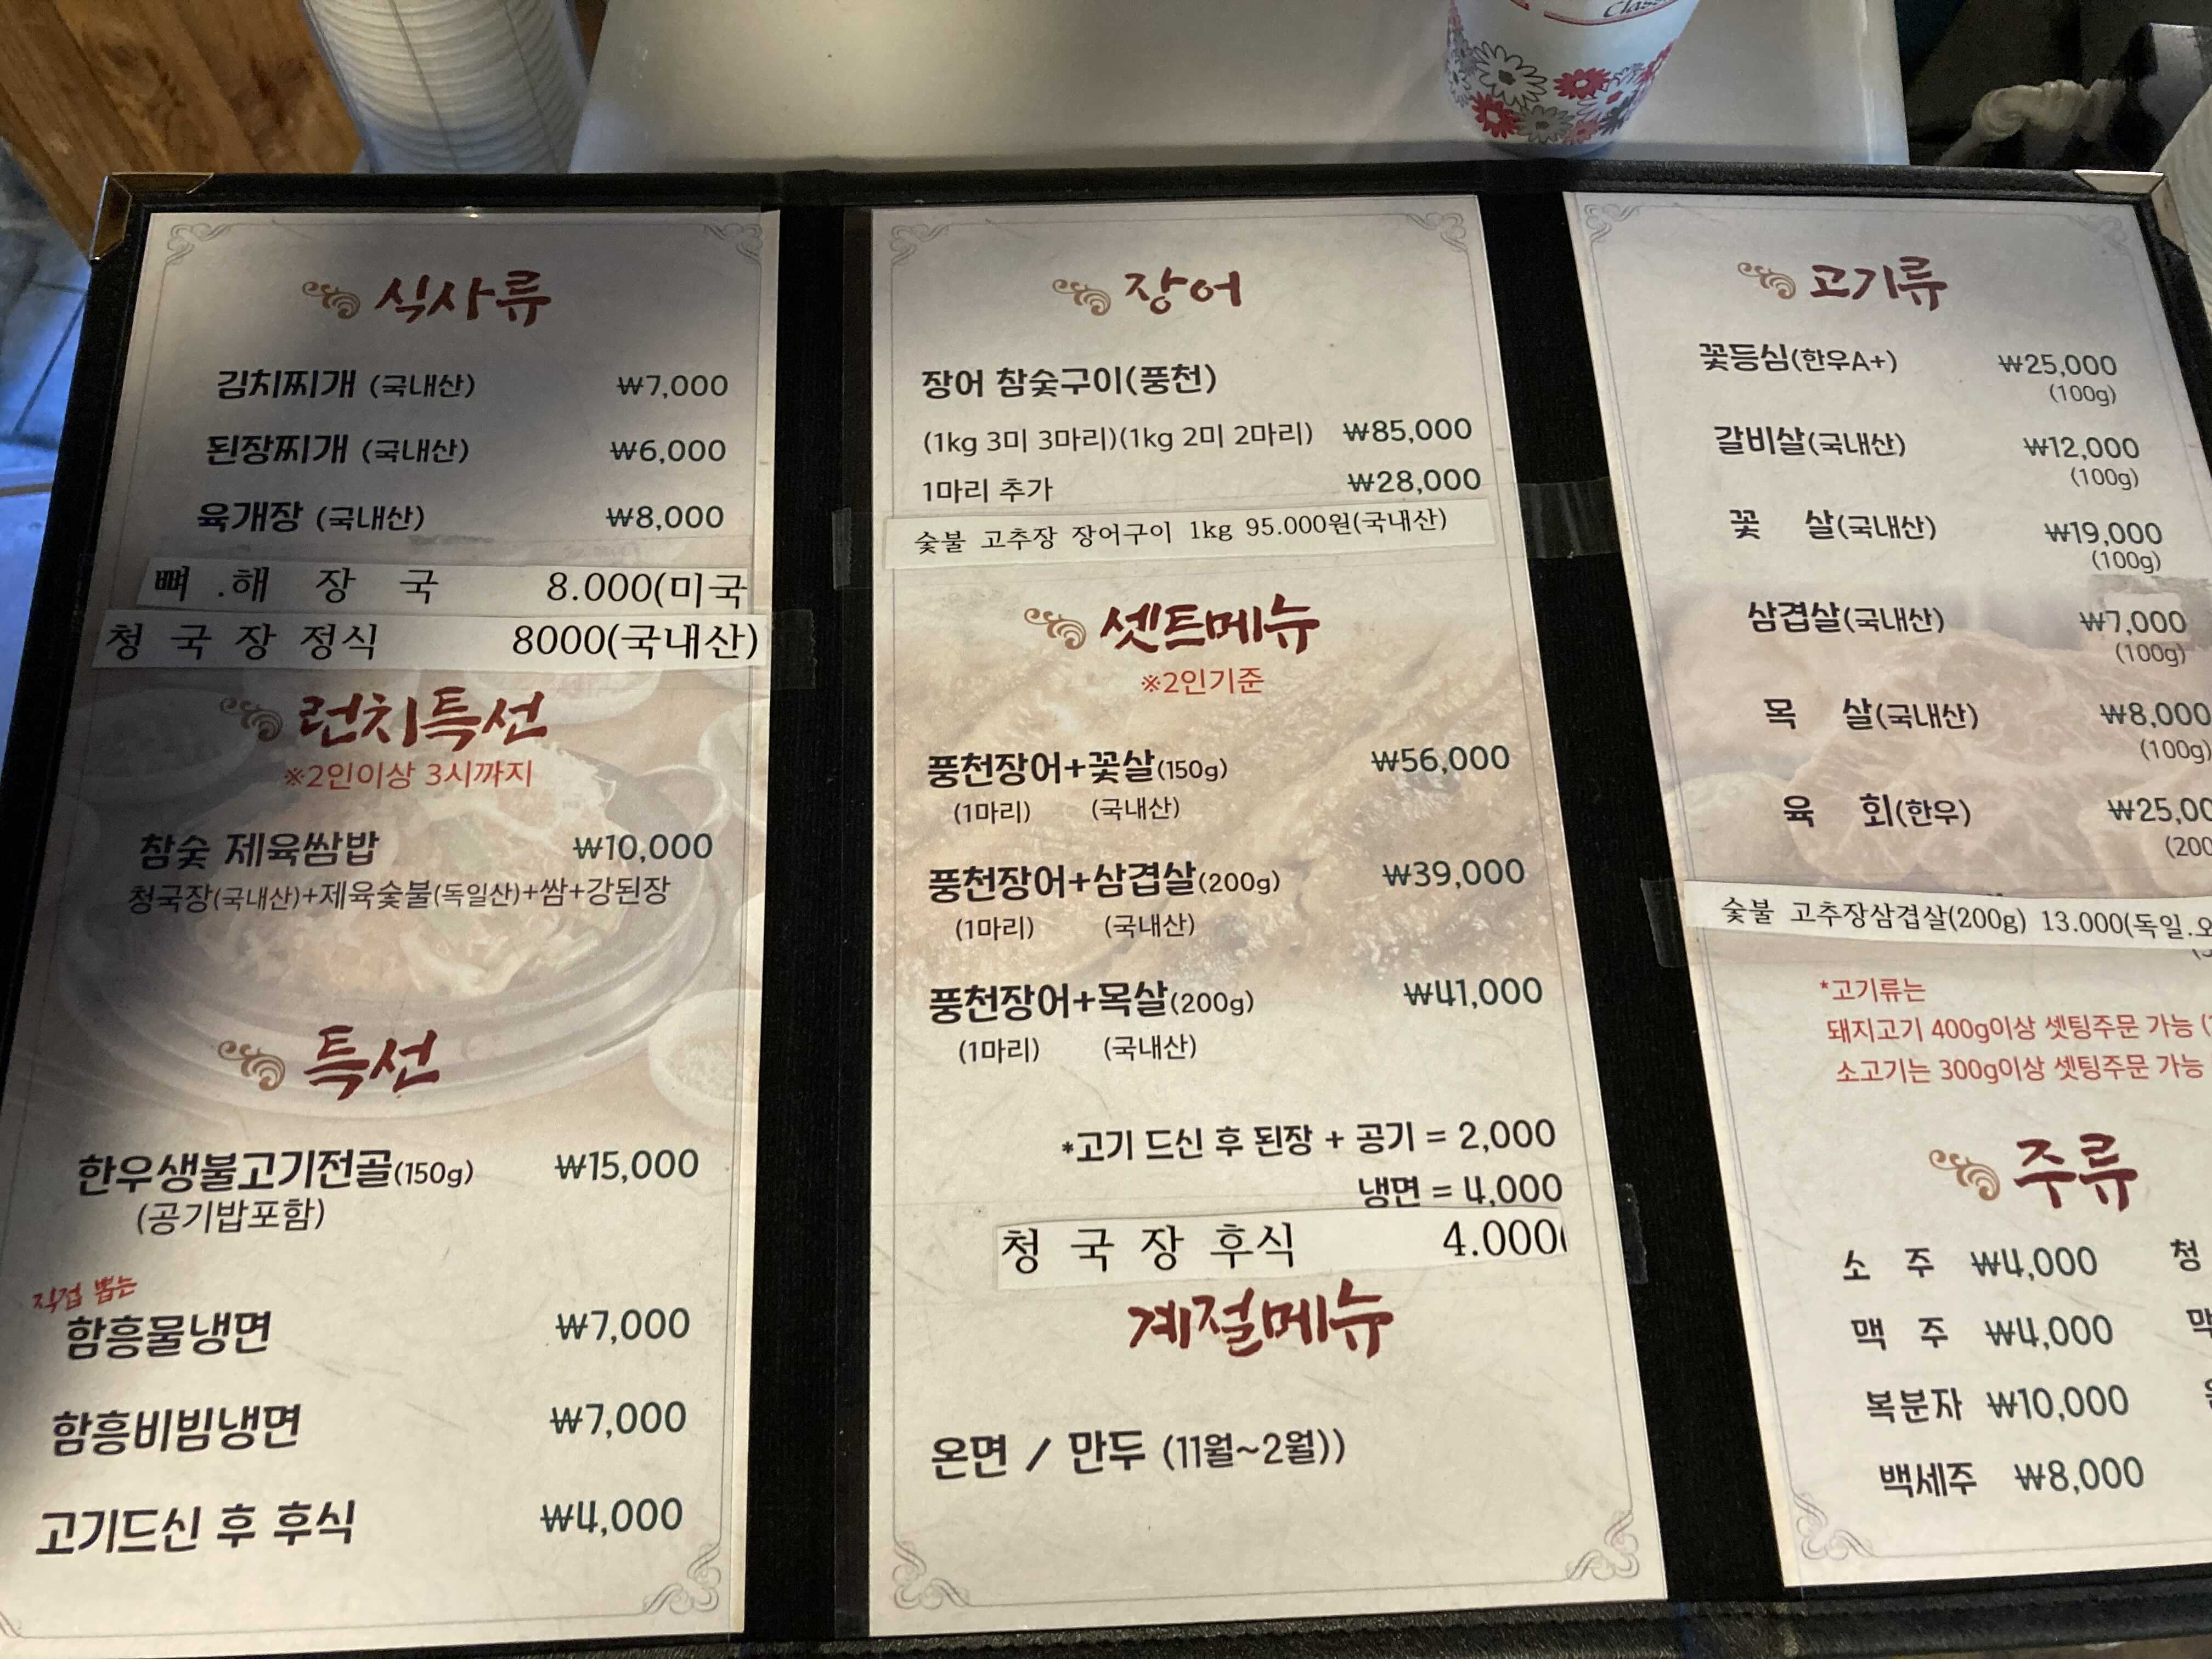 Class
식사류
김치찌개 (국내산) ₩7,000
된장찌개 (국내산) ₩6,000
육개장 (국내산) ₩8,000
뼈 .해 장 국 8.000(미국
청 국 장 정식 8000(국내산)
런치특선
※2인이상 3시까지
참숯 제육쌈밥 ₩10,000
청국장(국내산)+제육숯불(독일산)+쌈+강된장
특선
한우생불고기전골(150g) ₩15,000
(공기밥포함)
직접 뽑는
함흥물냉면 ₩7,000
함흥비빔냉면 ₩7,000
고기드신 후 후식 ₩4,000
장어
장어 참숯구이(풍천)
(1kg 3미 3마리)(1kg 2미 2마리) ₩85,000
1마리 추가 ₩28,000
숯불 고추장 장어구이 1kg 95.000원(국내산)
셋트메뉴
※2인기준
풍천장어+꽃살(150g) ₩56,000
(1마리) (국내산)
풍천장어+삼겹살(200g) ₩39,000
(1마리) (국내산)
풍천장어+목살(200g) ₩41,000
(1마리) (국내산)
*고기 드신 후 된장 + 공기 = 2,000
냉면 = 4,000
청 국 장 후식 4.000
계절메뉴
온면 / 만두 (11월~2월))
고기류
꽃등심(한우A+) ₩25,000
(100g)
갈비살(국내산) ₩12,000
(100g)
꽃 살(국내산) ₩19,000
(100g)
삼겹살(국내산) ₩7,000
(100g)
목 살(국내산) ₩8,000
(100g)
육 회(한우) ₩25,00
(200
숯불 고추장삼겹살(200g) 13.000(독일.오
*고기류는
돼지고기 400g이상 셋팅주문 가능 (
소고기는 300g이상 셋팅주문 가능
주류
소 주 ₩4,000 청
맥 주 ₩4,000
복분자 ₩10,000
백세주 ₩8,000